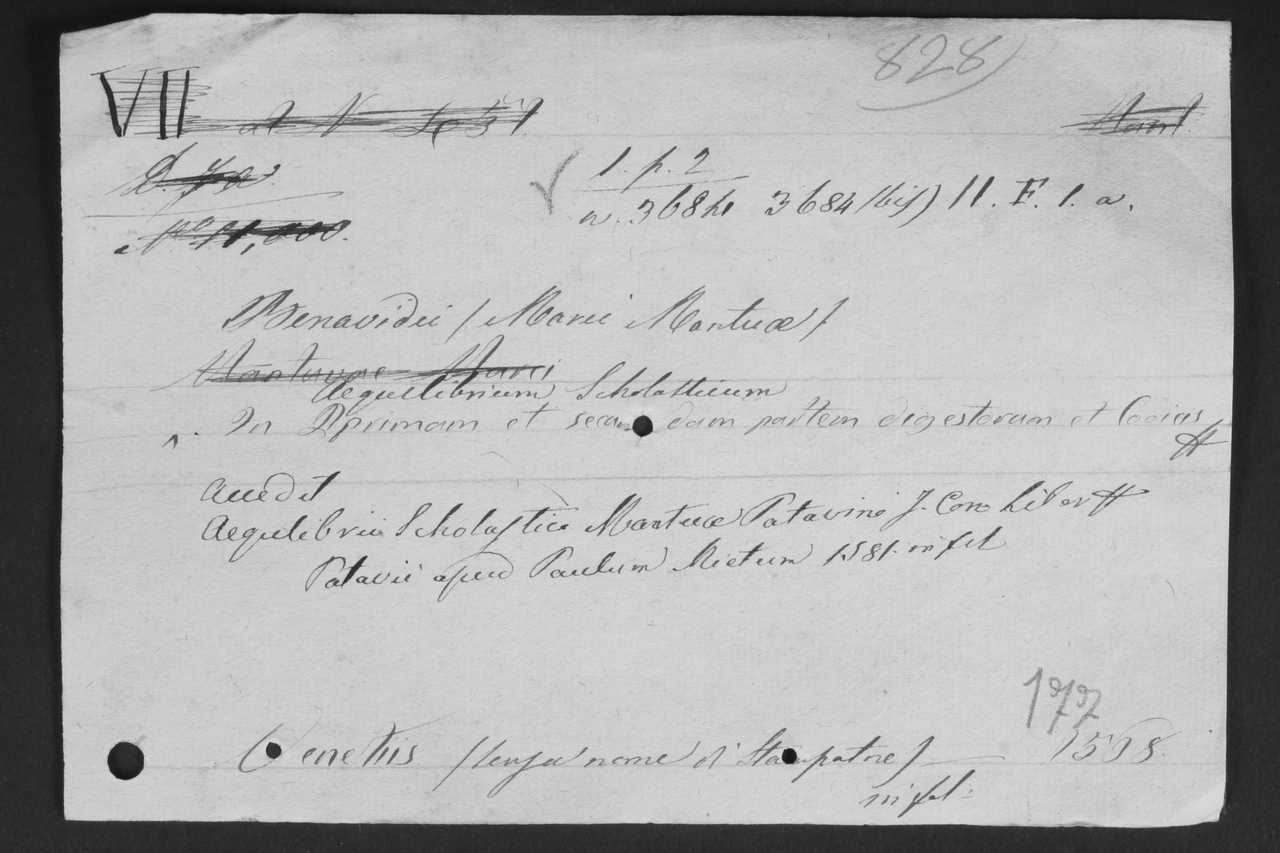 828)
VII
1. p. 2
n. 3684 3684 (bis) II. F. 1. a.
Benavidii (Marci Mantuæ)
Mantuae Marci
Aequilibrium Scholasticum
In Primam et secundam partem digestorum et Codicis
accedit
Aequilibrii Scholastici Mantuæ Patavini J. Con. liber
Patavii apud Paulum Mietum 1581. in fol
197
Venetiis (senza nome di Stampatore) 1568.
in fol.